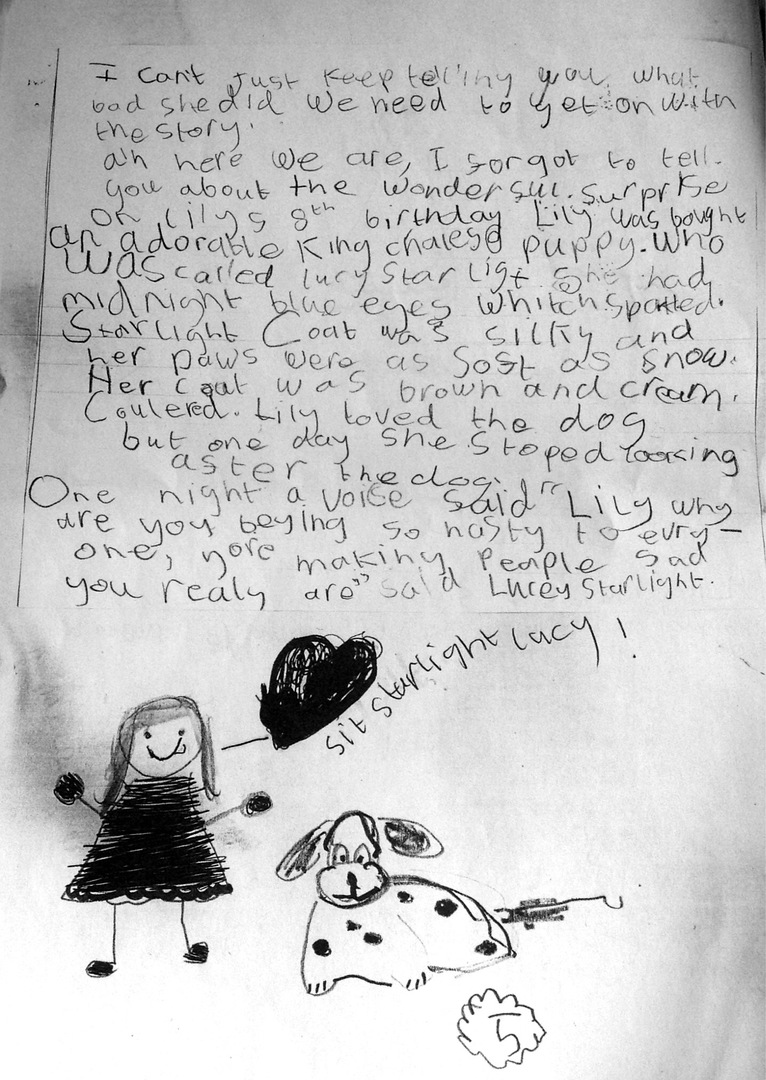 I cant just keep telling you what
bad she did we need to get on with
the story.
ah here we are, I forgot to tell
you about the wonderful surprise
on lilys 8th birthday Lily was bought
an adorable King chalese puppy. who
was called lucy Starligt She had
midnight blue eyes whitch sparkled.
Starlight Coat was silky and
her paws were as soft as snow.
Her coat was brown and cream.
Coulered. Lily loved the dog
but one day she stoped looking
after the dog.
One night a voice said "Lily why
are you beying so nasty to evry-
one, yore making People sad
you realy are" said Lucey Starlight.
sit starlight lucy!
5